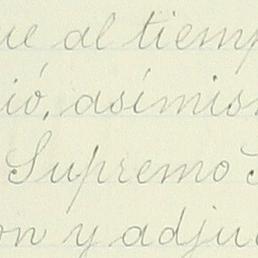 ue al tiemp
ió, asímis
Supremo
on y adju